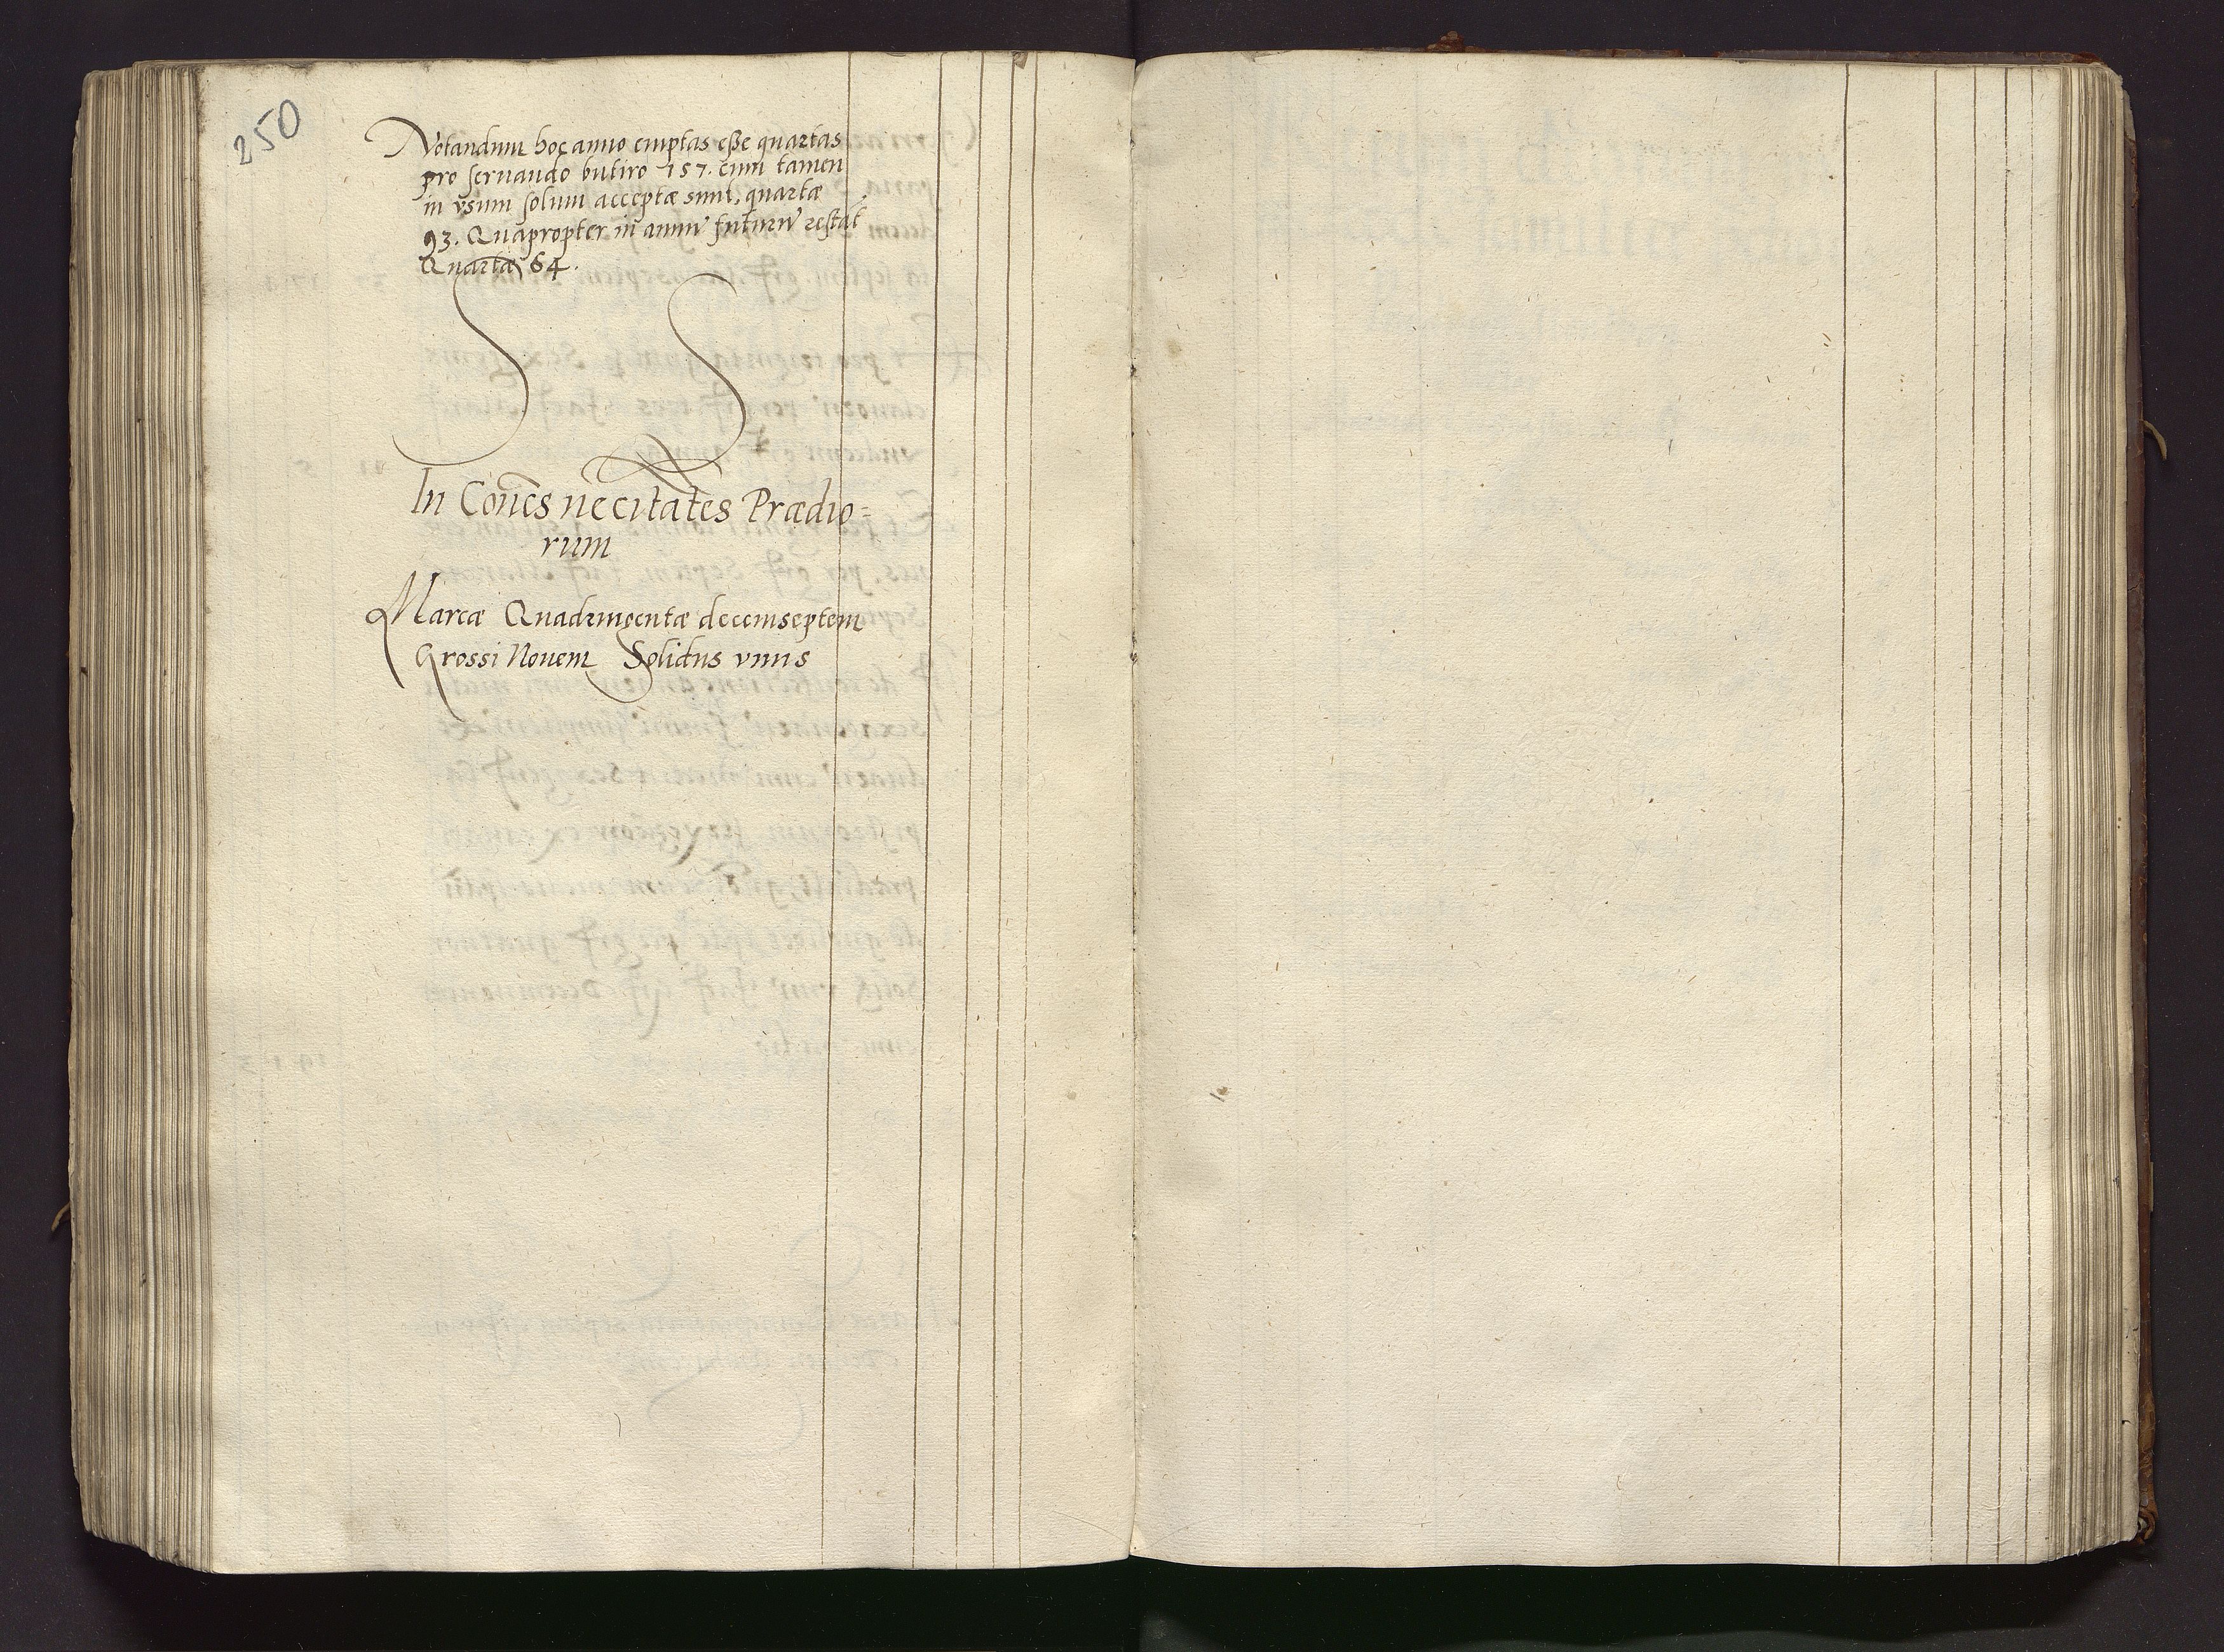 250
Notandum hoc anno emptas eße quartas
pro seruando butiro 157. cum tamen
in vsum solum acceptæ sunt, quartæ
93. Quapropter in annū futurū restāt
Quartæ 64.
In Cōnēs nēcitatēs Prædio=
rum
Marcæ Quadringentæ decemseptem
Grossi Nouem Solidus vnus